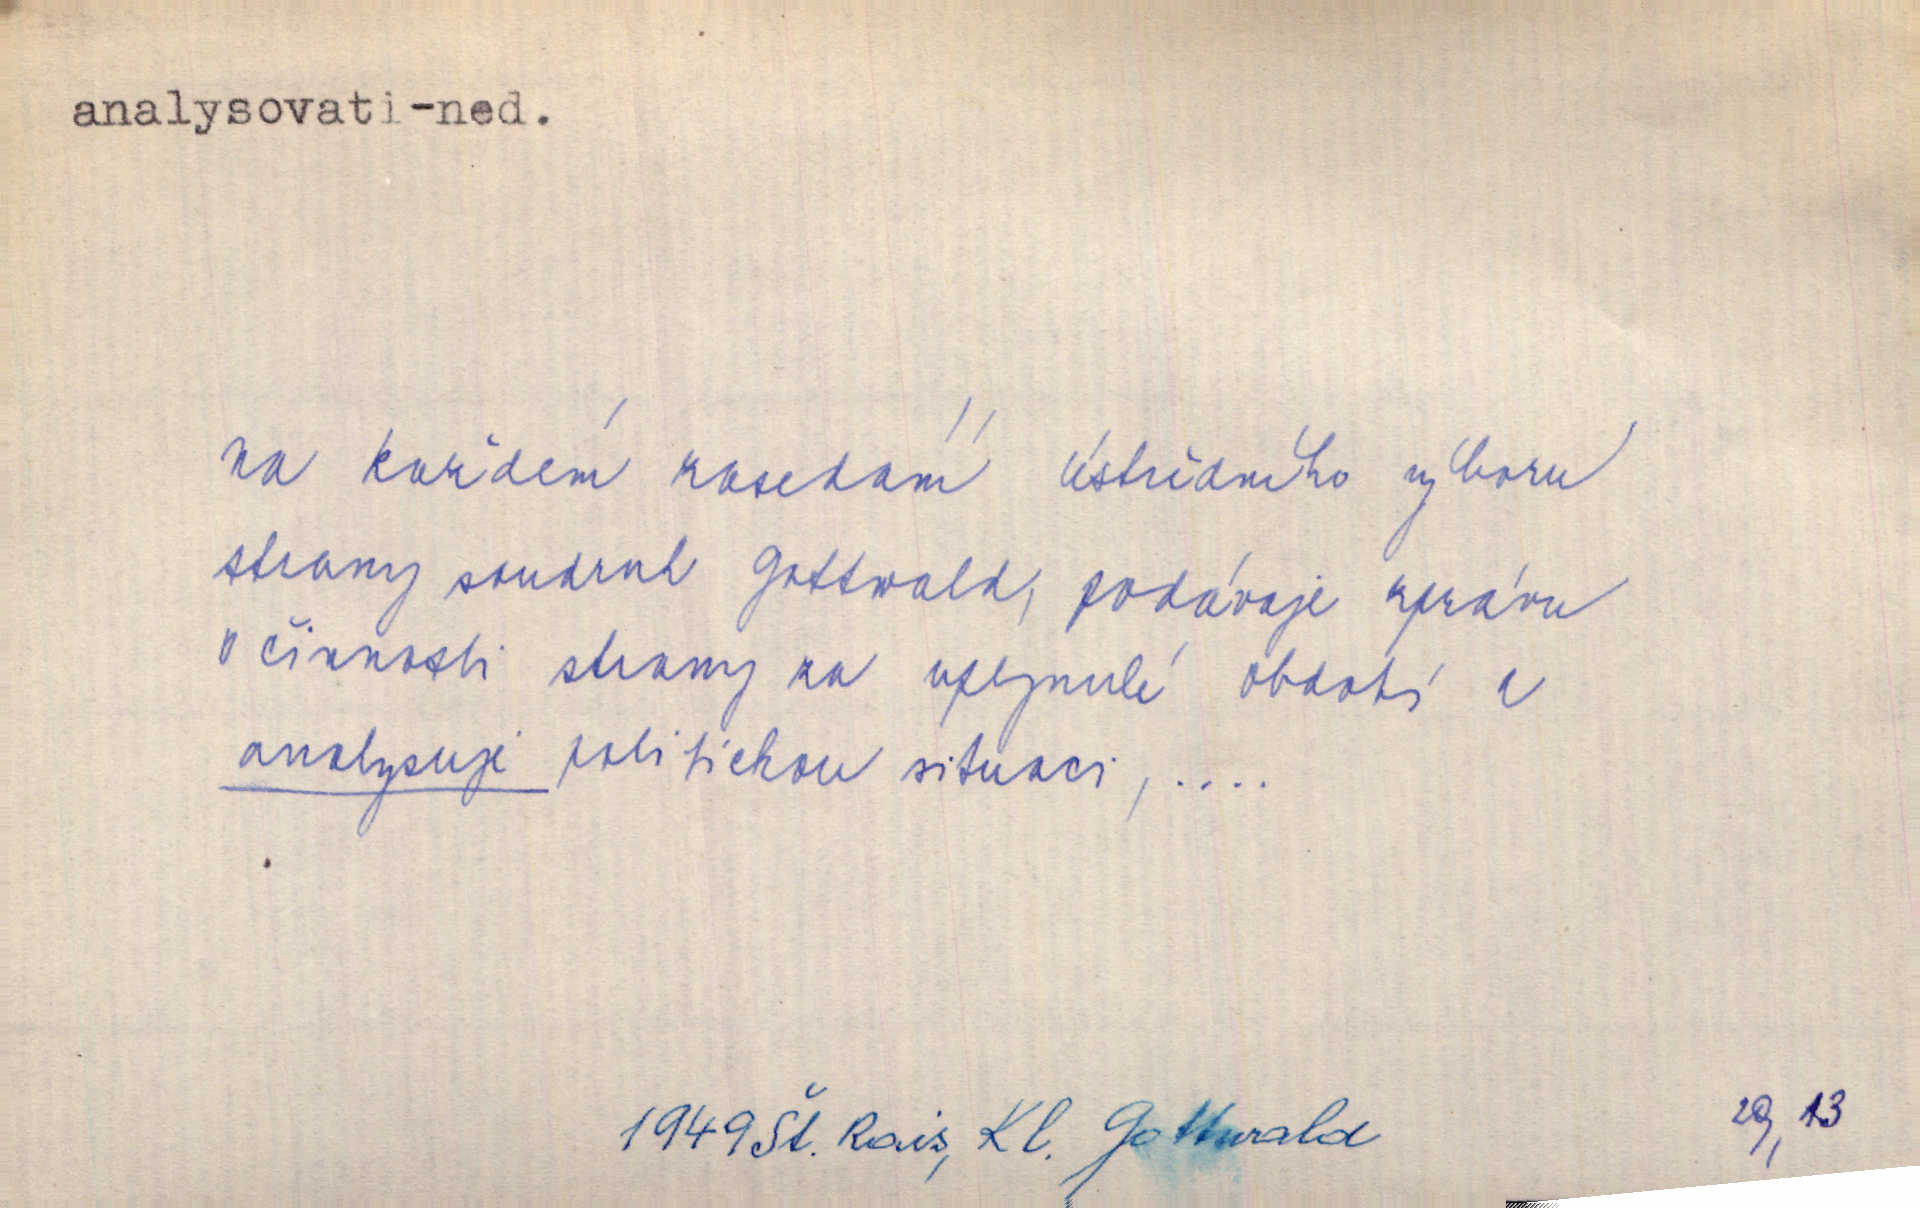 analysovati-ned.
na každém zasedání ústředního výboru
strany soudruh Gottwald, podávaje zprávu
o činnosti strany za uplynulé období a
analysuje politickou situaci, ....
1949 Št. Rais, Kl. Gottwald
29, 13